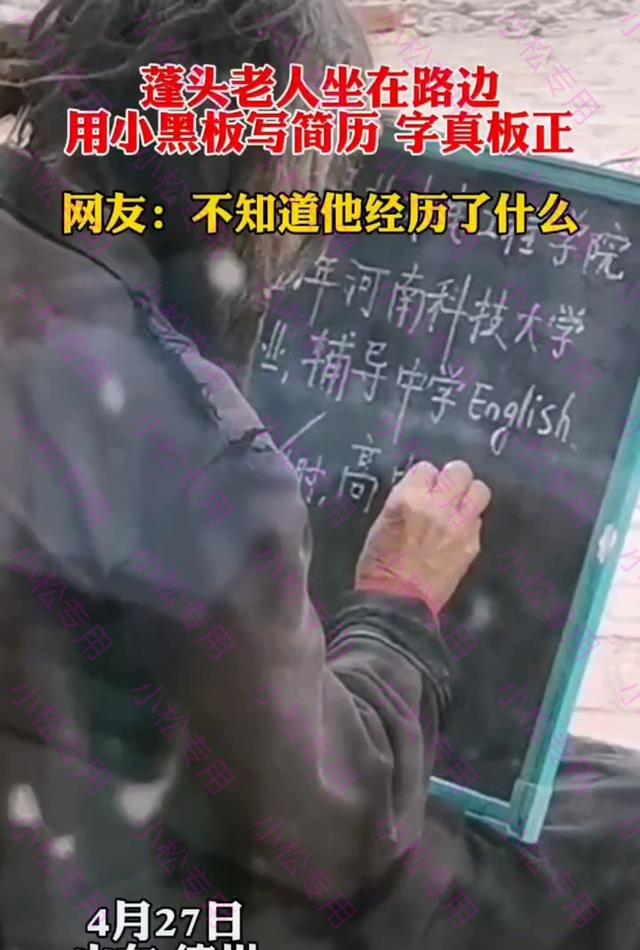 蓬头老人坐在路边
用小黑板写简历 字真板正
网友：不知道他经历了什么
程学院
年河南科技大学
业，辅导中学English
时，高中
4月27日
山东 德州
小松专用